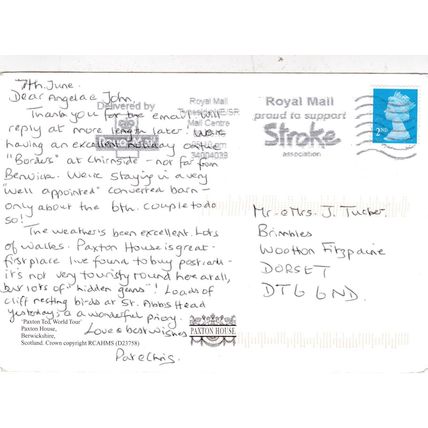 7th June.
Dear Angela & John,
Thank you for the email will
reply at more length later! We're
having an excellent holiday on the
"Borders" at Chirnside - not far from
Berwick. We're staying in a very
"well appointed" converted barn -
only about the 6th. couple to do
so!
The weather's been excellent. Lots
of walks. Paxton House is great -
first place I've found to buy postcards -
it's not very touristy round here at all,
but lots of "hidden gems"! Loads of
cliff nesting birds at St. Abbs Head
yesterday, & a wonderful priory.
Love & best wishes
Pat & Chris.
'Paxton Ted, World Tour'
Paxton House,
Berwickshire,
Scotland. Crown copyright RCAHMS (D23758)
PAXTON HOUSE
Delivered by
Royal Mail
Mail Centre
34004039
Royal Mail
proud to support
Stroke
association
2ND
Mr. & Mrs. J. Tucker
Brimbles
Wootton Fitzpaine
DORSET
DT6 6ND.